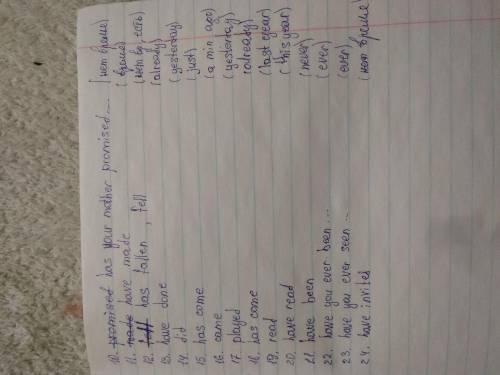 10. promised has your mother promised... (нет время
11. made have made (время)
12. fell has fallen, fell
13. have done (already)
14. did (yesterday)
15. has come (just)
16. came (a min ago)
17. played (yesterday)
18. has come (already)
19. read (last year)
20. have read (this year)
21. have been (never)
22. have you ever been... (ever)
23. have you ever seen... (ever)
24. have invited (нет время